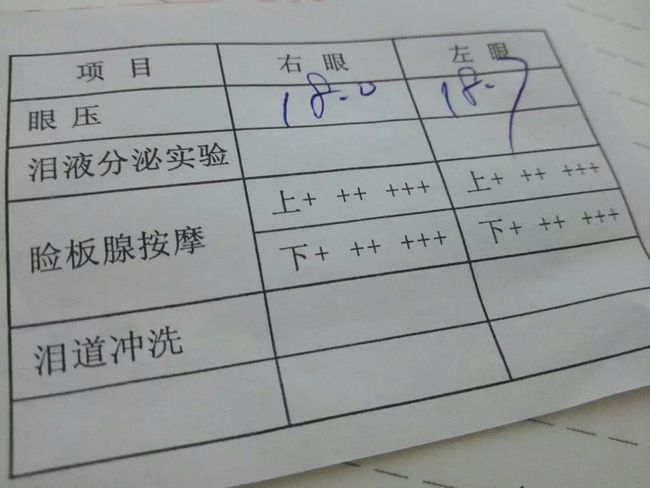 项目 右眼 左眼
眼压 18.0 18.7
泪液分泌实验
睑板腺按摩 上+ ++ +++ 上+ ++ +++
下+ ++ +++ 下+ ++ +++
泪道冲洗